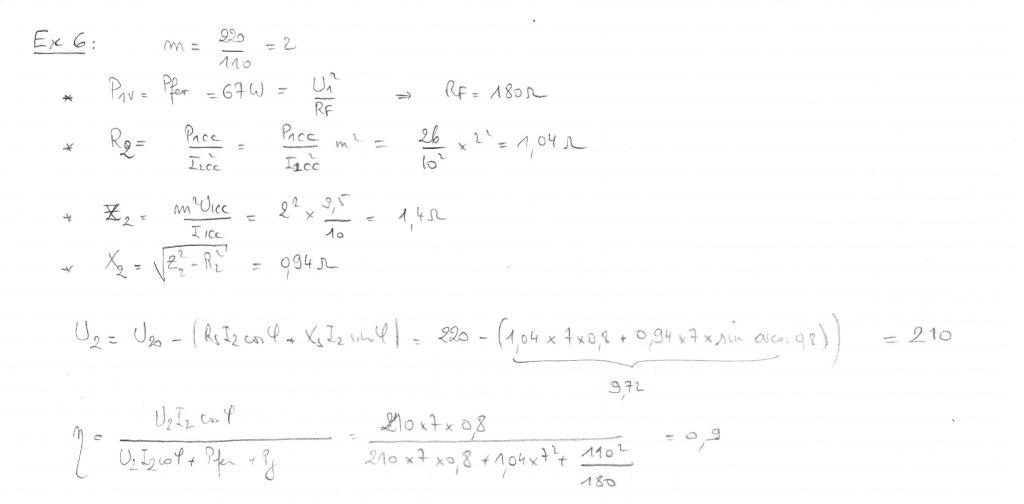 Ex 6: m = 220/110 = 2
* P1V = Pfer = 67W = U1²/RF ⇒ RF = 180Ω
* R2 = P1cc/I2cc² = P1cc/I1cc² m² = 26/10² × 2² = 1,04Ω
* Z2 = m²U1cc/I1cc = 2² × 3,5/10 = 1,4Ω
* X2 = √(Z2² - R2²) = 0,94Ω
U2 = U20 - (RsI2cosφ + XsI2sinφ) = 220 - (1,04×7×0,8 + 0,94×7×sin acos 0,8)) = 210
9,72
η = U2I2cosφ/(U2I2cosφ + Pfer + Pj) = 210×7×0,8/(210×7×0,8 + 1,04×7² + 110²/180) = 0,9